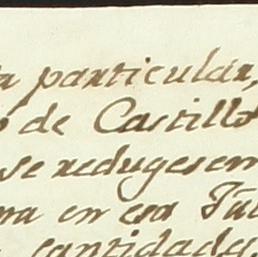 particular,
de Castillo
se redugesem
en esa
cantidades